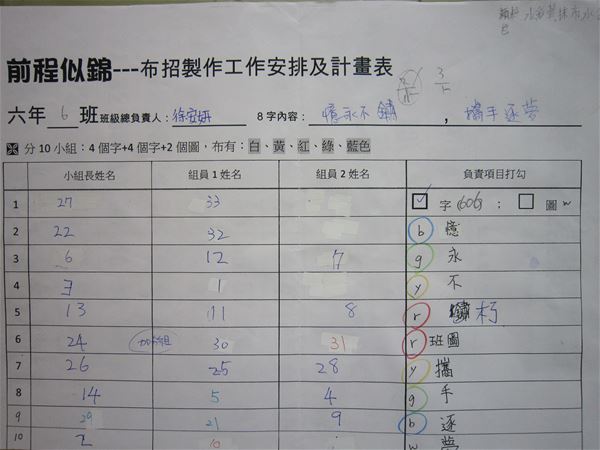 顏料 水
前程似錦---布招製作工作安排及計畫表
六年 6 班班級總負責人：徐安妍 8字內容：憶永不鏽，攜手逐夢
※ 分10小組：4個字+4個字+2個圖，布有：白、黃、紅、綠、藍色
小組長姓名 組員1姓名 組員2姓名 負責項目打勾
1 27 33 ☑ 字(606)；☐ 圖 w
2 22 32 b 憶
3 6 12 7 g 永
4 3 1 y 不
5 13 11 8 r 朽
6 24 30 31 r 班圖
7 26 25 28 y 攜
8 14 5 4 g 手
9 29 21 9 b 逐
10 2 10 w 夢